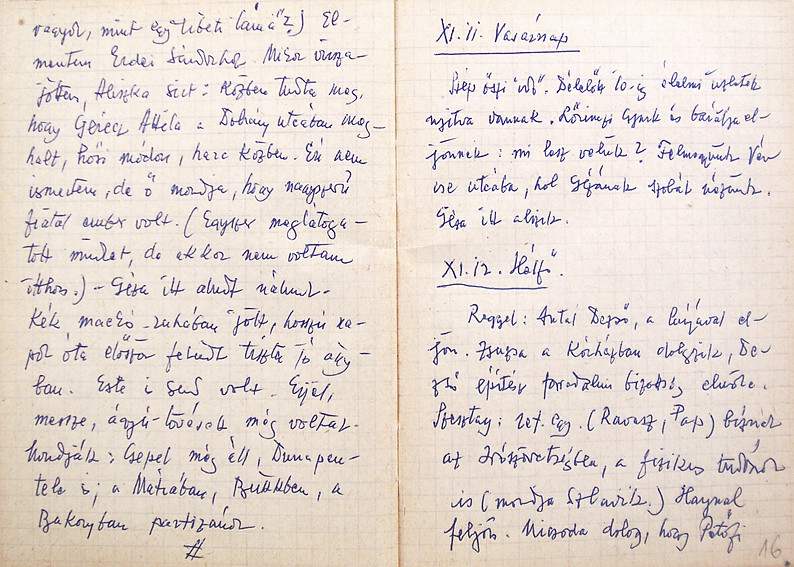 vagyok, mint egy tibeti láma"?) El-
mentem Erdei Sándorhoz. Mikor vissza-
jöttem, Aliszka sírt: Közben tudta meg,
hogy Gérecz Attila a Dohány utcában meg-
halt, hősi módon, harc közben. Én nem
ismertem, de ő mondja, hogy nagyszerű
fiatal ember volt. (Egyszer meglátoga-
tott minket, de akkor nem voltam
itthon.) – Géza itt aludt nálunk.
Kék mackó-ruhában jött, hosszú
óta először feküdt tiszta jó ágy-
ban. Este csend volt. Éjjel,
messze, ágyú-lövések még voltak.
Mondják: Csepel még áll, Dunapen-
tele is; a Mátrában, Bükkben, a
Bakonyban partizánok.
#
XI. 11. Vasárnap
Szép őszi idő. Délelőtt 10-ig élelmi üzletek
nyitva vannak. Lőrinczi Gyurk és barátja el-
jönnek: mi lesz velük? Felmegyünk
utcába, hol Gézának szobát nézünk.
Géza itt alszik.
XI. 12. Hétfő.
Reggel: Antal Dezső, a lányával el-
jön. Zsuzsa a Kórházban dolgozik, De-
zső építész forradalmi bizottság elnöke.
Szesztay: ref. egy. (Ravasz, Pap) bíznak
az Írószövetségben, a fizikus tudósok
is (mondja Szlavik.) Haynal
feljön. Micsoda dolog, hogy Petőfi
16